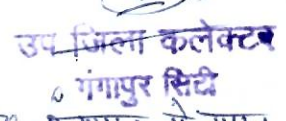 उप जिला कलेक्टर
गंगापुर सिटी